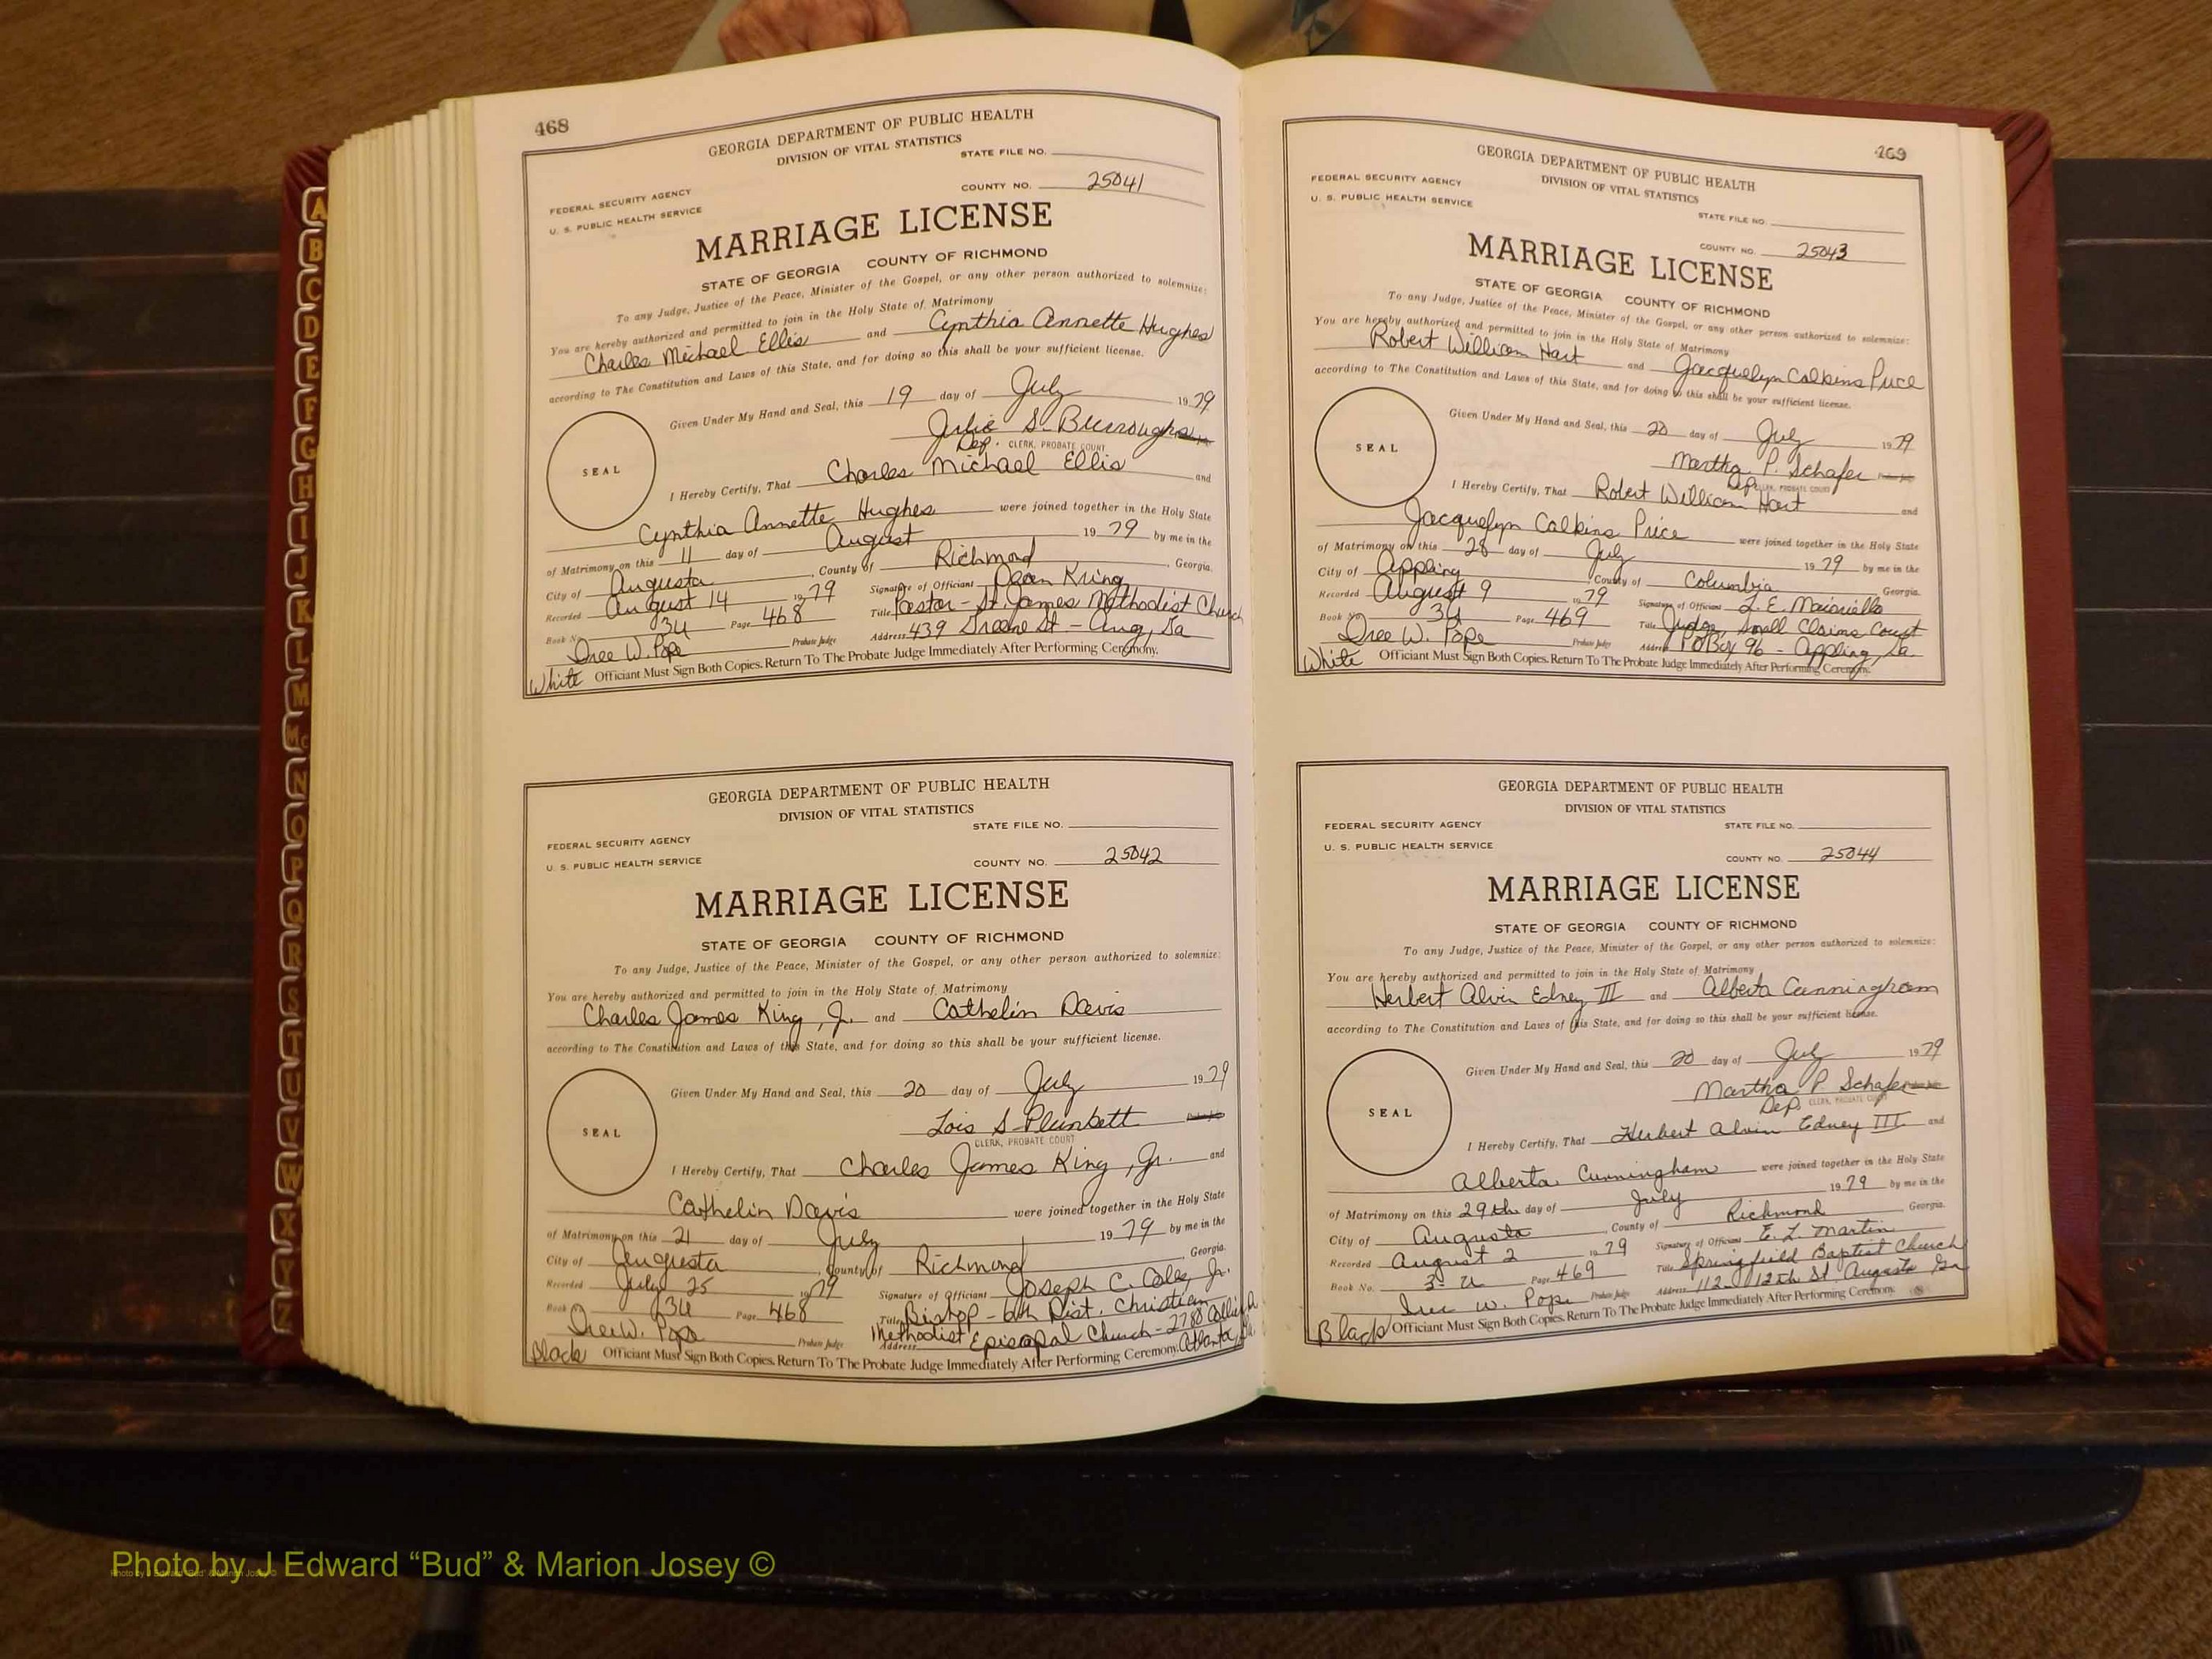 468
GEORGIA DEPARTMENT OF PUBLIC HEALTH
DIVISION OF VITAL STATISTICS
STATE FILE NO.
FEDERAL SECURITY AGENCY
COUNTY NO. 25041
U. S. PUBLIC HEALTH SERVICE
MARRIAGE LICENSE
STATE OF GEORGIA COUNTY OF RICHMOND
To any Judge, Justice of the Peace, Minister of the Gospel, or any other person authorized to solemnize:
You are hereby authorized and permitted to join in the Holy State of Matrimony
Charles Michael Ellis and Cynthia Annette Hughes
according to The Constitution and Laws of this State, and for doing so this shall be your sufficient license.
Given Under My Hand and Seal, this 19 day of July 1979
Julie S. Burroughs
Dep. CLERK, PROBATE COURT
SEAL
I Hereby Certify, That Charles Michael Ellis and
Cynthia Annette Hughes were joined together in the Holy State
of Matrimony on this 11 day of August 1979 by me in the
City of Augusta, County of Richmond, Georgia.
Recorded August 14 1979 Signature of Officiant Dean Kring
Book No. 3U Page 468 Title Pastor - St. James Methodist Church
Probate Judge Address 439 Greene St - Aug, Ga
White Officiant Must Sign Both Copies. Return To The Probate Judge Immediately After Performing Ceremony.
GEORGIA DEPARTMENT OF PUBLIC HEALTH
DIVISION OF VITAL STATISTICS
STATE FILE NO.
FEDERAL SECURITY AGENCY
U. S. PUBLIC HEALTH SERVICE
COUNTY NO. 25042
MARRIAGE LICENSE
STATE OF GEORGIA COUNTY OF RICHMOND
To any Judge, Justice of the Peace, Minister of the Gospel, or any other person authorized to solemnize:
You are hereby authorized and permitted to join in the Holy State of Matrimony
Charles James King, Jr. and Cathelin Davis
according to The Constitution and Laws of this State, and for doing so this shall be your sufficient license.
Given Under My Hand and Seal, this 20 day of July 1979
Lois S Plunkett
CLERK, PROBATE COURT
SEAL
I Hereby Certify, That Charles James King, Jr. and
Cathelin Davis were joined together in the Holy State
of Matrimony on this 21 day of July 1979 by me in the
City of Augusta, County of Richmond, Georgia.
Recorded July 25 1979 Signature of Officiant Joseph C. Coles, Jr.
Book 3U Page 468 Title Bishop - 6th Dist. Christian
Probate Judge Address Methodist Episcopal Church - 2780 Atlanta, Ga.
Black Officiant Must Sign Both Copies. Return To The Probate Judge Immediately After Performing Ceremony.
469
GEORGIA DEPARTMENT OF PUBLIC HEALTH
DIVISION OF VITAL STATISTICS
FEDERAL SECURITY AGENCY
U. S. PUBLIC HEALTH SERVICE
STATE FILE NO.
COUNTY NO. 25043
MARRIAGE LICENSE
STATE OF GEORGIA COUNTY OF RICHMOND
To any Judge, Justice of the Peace, Minister of the Gospel, or any other person authorized to solemnize:
You are hereby authorized and permitted to join in the Holy State of Matrimony
Robert William Hart and Jacquelyn Calkins Price
according to The Constitution and Laws of this State, and for doing so this shall be your sufficient license.
Given Under My Hand and Seal, this 20 day of July 1979
Martha P. Schafer
Dep. CLERK, PROBATE COURT
SEAL
I Hereby Certify, That Robert William Hart and
Jacquelyn Calkins Price were joined together in the Holy State
of Matrimony on this 28 day of July 1979 by me in the
City of Appling, County of Columbia Georgia.
Recorded August 9 1979 Signature of Officiant
Book No. 3U Page 469 Title Judge, Small Claims Court
Probate Judge Address PO Box 96 - Appling, Ga.
White Officiant Must Sign Both Copies. Return To The Probate Judge Immediately After Performing Ceremony.
GEORGIA DEPARTMENT OF PUBLIC HEALTH
DIVISION OF VITAL STATISTICS
FEDERAL SECURITY AGENCY
STATE FILE NO.
U. S. PUBLIC HEALTH SERVICE
COUNTY NO. 25044
MARRIAGE LICENSE
STATE OF GEORGIA COUNTY OF RICHMOND
To any Judge, Justice of the Peace, Minister of the Gospel, or any other person authorized to solemnize:
You are hereby authorized and permitted to join in the Holy State of Matrimony
Herbert Alvin Edney III and Alberta Cunningham
according to The Constitution and Laws of this State, and for doing so this shall be your sufficient license.
Given Under My Hand and Seal, this 20 day of July 1979
Martha P Schafer
Dep. CLERK, PROBATE COURT
SEAL
I Hereby Certify, That Herbert Alvin Edney III and
Alberta Cunningham were joined together in the Holy State
of Matrimony on this 29th day of July 1979 by me in the
City of Augusta, County of Richmond Georgia.
Recorded August 2 1979 Signature of Officiant E. L. Martin
Book No. 3-U Page 469 Title Springfield Baptist Church
Probate Judge Address 112 12th St. Augusta Ga
Black Officiant Must Sign Both Copies. Return To The Probate Judge Immediately After Performing Ceremony.
A
B
C
D
E
F
G
H
I
J
K
L
M
Mc
N
O
P
Q
R
S
T
U
V
W
X
Y
Z
Photo by J Edward “Bud” & Marion Josey ©